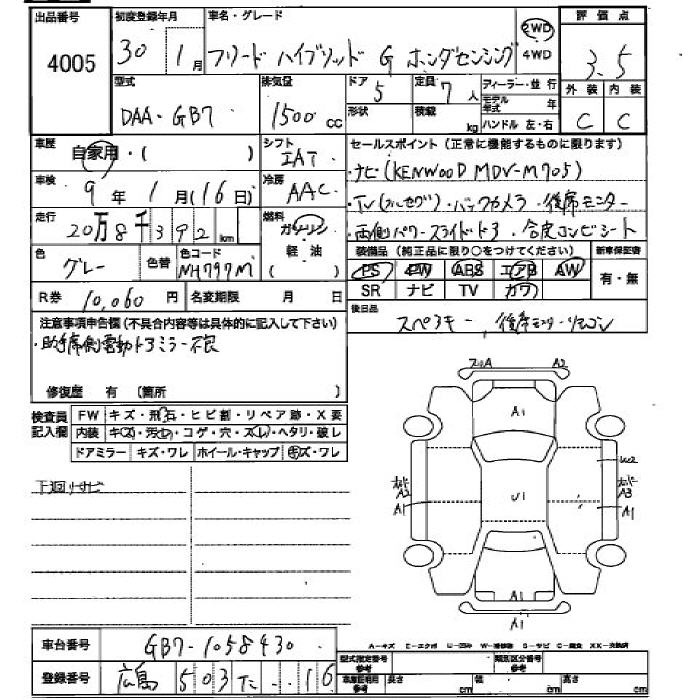 出品番号 初度登録年月 車名・グレード 評価点
4005 30年 1月 フリード ハイブリッド G ホンダセンシング 2WD 4WD 3.5
型式 排気量 ドア 5 定員 7人 ディーラー・並行 外装 内装
DAA-GB7 1500cc 形状 積載 kg モデル年式 年 ハンドル 左・右 C C
車歴 自家用・( ) シフト IAT セールスポイント(正常に機能するものに限ります)
車検 9年 1月(16日) 冷房 AAC ・ナビ(KENWOOD MDV-M705)
・TV(フルセグ)・バックカメラ・後席モニター
走行 20万8千392km 燃料 ガソリン 軽油 ・両側パワースライドドア・合皮コンビシート
色 グレー 色替 色コード NH797M 装備品(純正品に限り○をつけてください) 新車保証書
PS PW ABS エアB AW 有・無
SR ナビ TV カワ
R券 10,060円 名変期限 月 日
後日品 スペアキー、後席モニターリモコン
注意事項申告欄(不具合内容等は具体的に記入して下さい)
・助手席側電動ドアミラー不良
修復歴 有(箇所 )
検査員記入欄 FW キズ・飛石・ヒビ割・リペア跡・X要
内装 キズ・汚れ・コゲ・穴・スレ・ヘタリ・破レ
ドアミラー キズ・ワレ ホイール・キャップ キズ・ワレ
下廻りサビ
A2
A1
A2
A1
U1
A3
A1
A1
A1
A-キズ E-エクボ U-凹み W-補修跡 S-サビ C-腐食 XX-交換済
車台番号 GB7-1058430
型式指定番号 参考 類別区分番号 参考
登録番号 広島 503 た ・・16
車庫証明用 参考 長さ cm 幅 cm 高さ cm